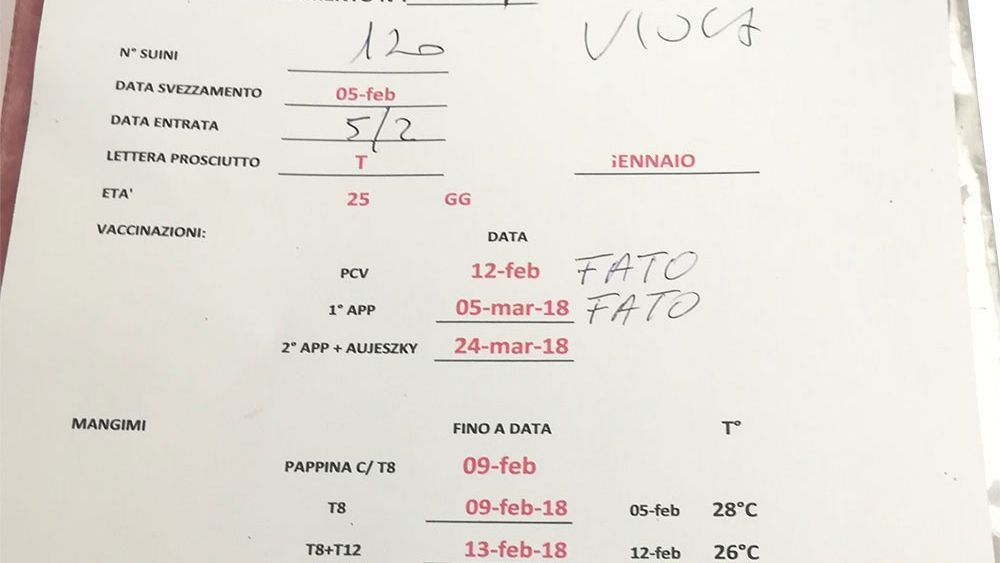 N° SUINI 120 VIOLA
DATA SVEZZAMENTO 05-feb
DATA ENTRATA 5/2
LETTERA PROSCIUTTO T iENNAIO
ETA' 25 GG
VACCINAZIONI:
DATA
PCV 12-feb FATO
1° APP 05-mar-18 FATO
2° APP + AUJESZKY 24-mar-18
MANGIMI FINO A DATA T°
PAPPINA C/ T8 09-feb
T8 09-feb-18 05-feb 28°C
T8+T12 13-feb-18 12-feb 26°C